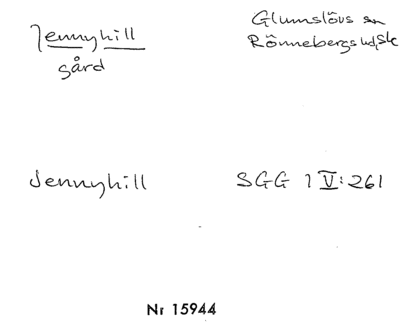 Jennyhill
gård
Glumslövs sn
Rönnebergs hd, Sk
Jennyhill
SGG 1 V:261
Nr 15944